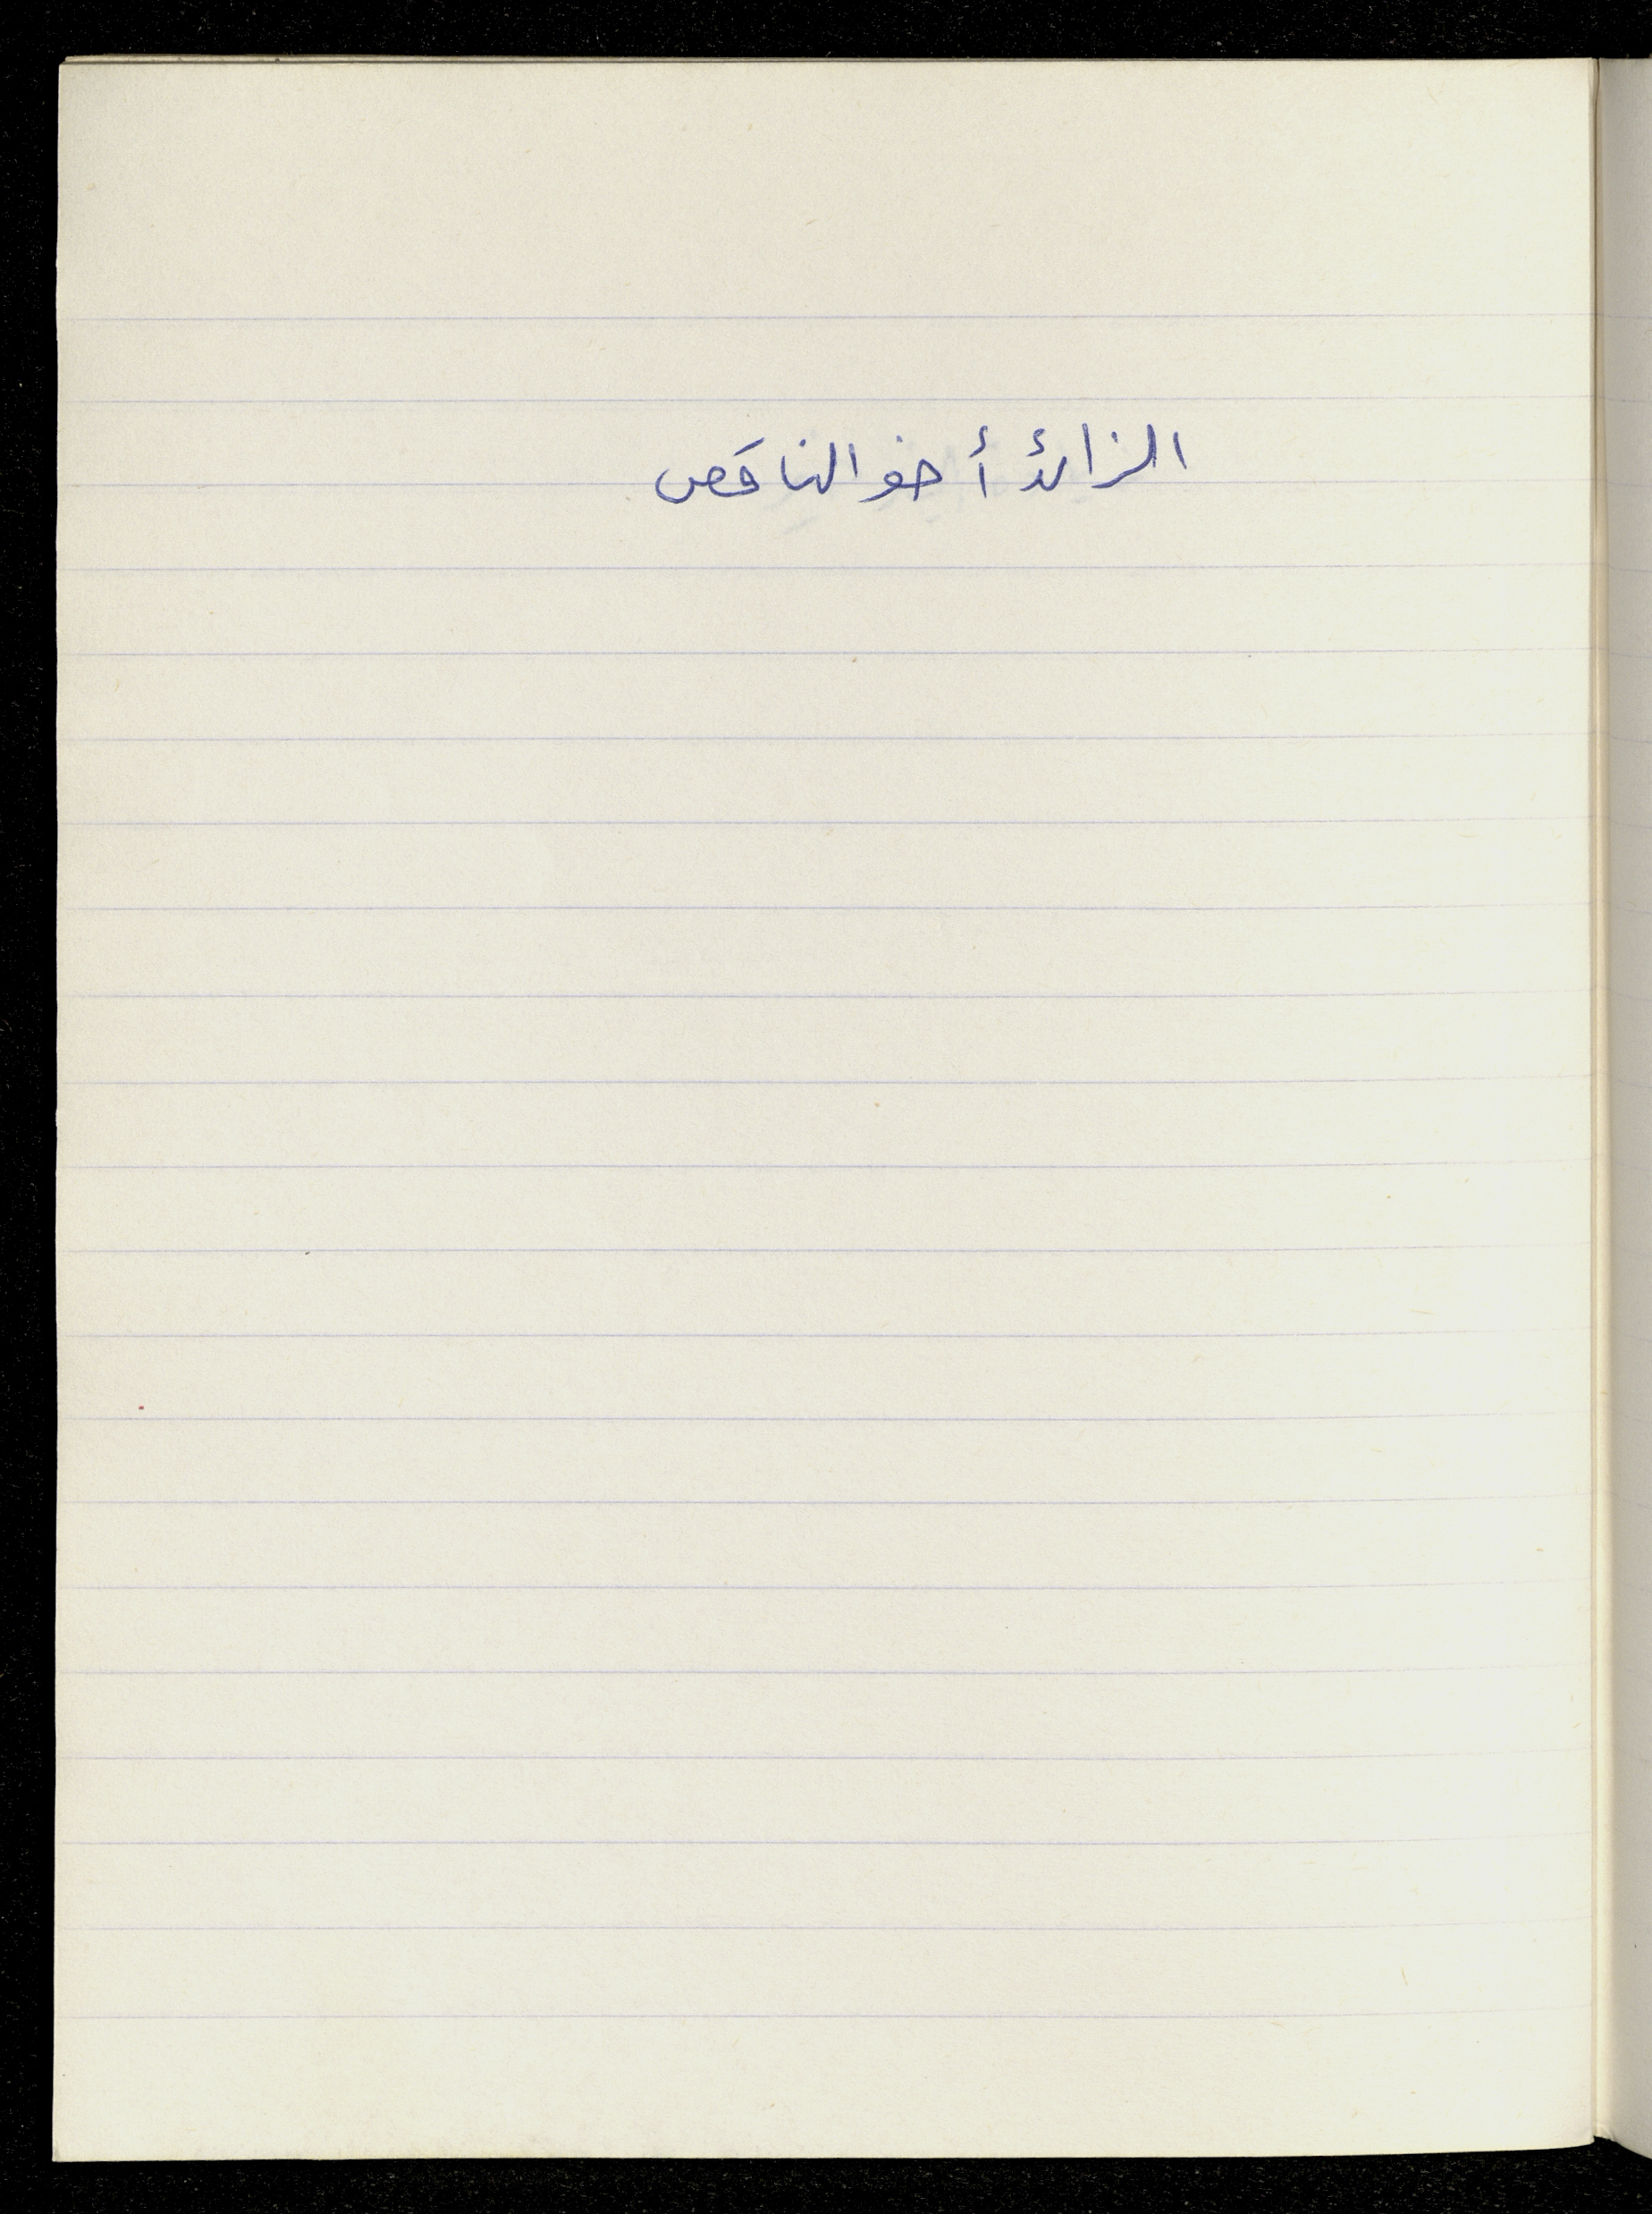 الزائد أخو الناقص